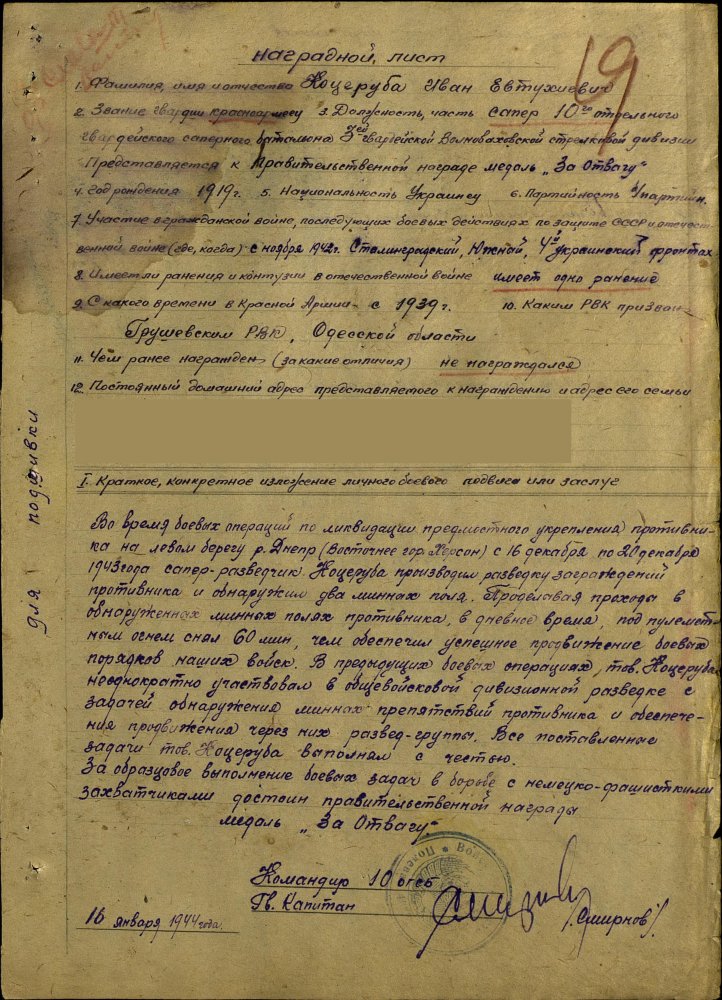 19
Наградной лист
1. Фамилия, имя и отчество Коцеруба Иван Евтухиевич
2. Звание гвардии красноармеец 3. Должность, часть сапер 10го отдельного
гвардейского саперного баталиона 3ей гвардейской Волновахской стрелковой дивизии
Представляется к Правительственной награде медаль „За Отвагу"
4. Год рождения 1919г. 5. Национальность Украинец 6. Партийность
7. Участие в гражданской войне, последующих боевых действиях по защите СССР и отечест-
венной войне (где, когда) с ноября 1942г. Сталинградский, Южный, 4й Украинский фронтах
8. Имеет ли ранения и контузии в отечественной войне имеет одно ранение
9. С какого времени в Красной Армии с 1939г. 10. Каким РВК призван
Грушевским РВК, Одесской области
11. Чем ранее награжден (за какие отличия) не награждался
12. Постоянный домашний адрес представляемого к награждению и адрес его семьи
I. Краткое, конкретное изложение личного боевого подвига или заслуг
Во время боевых операций по ликвидации предмостного укрепления противни-
ка на левом берегу р. Днепр (Восточнее гор. Херсон) с 16 декабря по 20 декабря
1943 года сапер-разведчик Коцеруба производил разведку заграждений
противника и обнаружил два минных поля. Проделавая проходы в
обнаруженных минных полях противника, в дневное время, под пулемет-
ным огнем снял 60 мин, чем обеспечил успешное продвижение боевых
порядков наших войск. В предыдущих боевых операциях, тов. Коцеруба
неоднократно участвовал в общевойсковой дивизионной разведке с
задачей обнаружения минных препятствий противника и обеспече-
ния продвижения через них развед-группы. Все поставленные
задачи тов. Коцеруба выполнял с честью.
За образцовое выполнение боевых задач в борьбе с немецко-фашисткими
захватчиками достоин правительственной награды
медаль „За Отвагу".
Командир 10 огсб
Гв. Капитан /Смирнов/.
16 января 1944 года.
для подшивки